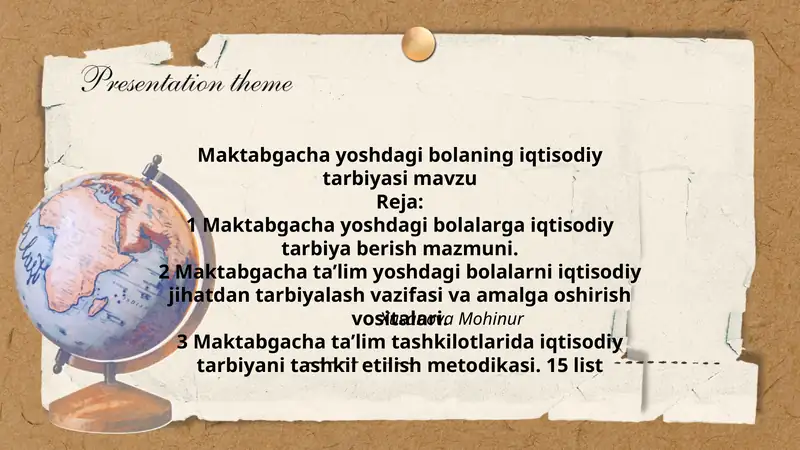 Presentation theme
Maktabgacha yoshdagi bolaning iqtisodiy
tarbiyasi mavzu
Reja:
1 Maktabgacha yoshdagi bolalarga iqtisodiy
tarbiya berish mazmuni.
2 Maktabgacha ta’lim yoshdagi bolalarni iqtisodiy
jihatdan tarbiyalash vazifasi va amalga oshirish
vositalari.
Mohinur
3 Maktabgacha ta’lim tashkilotlarida iqtisodiy
tarbiyani tashkil etilish metodikasi. 15 list